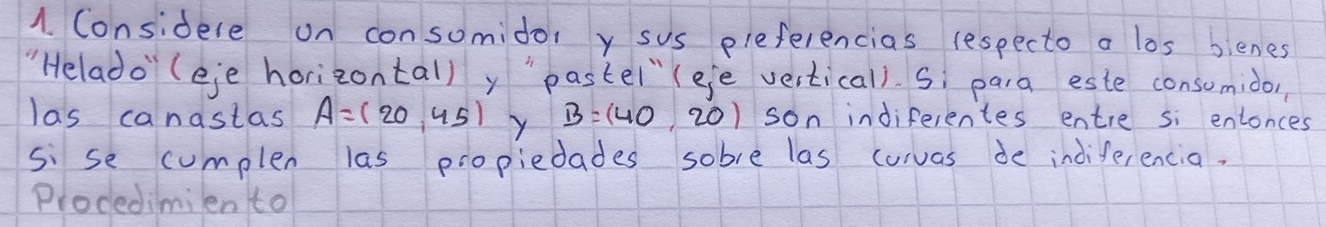 1. Considere un consumidor y sus preferencias respecto a los bienes
"Helado" (eje horizontal) y "pastel" (eje vertical). Si para este consumidor,
las canastas A=(20,45) y B=(40,20) son indiferentes entre si entonces
si se cumplen las propiedades sobre las curvas de indiferencia.
Procedimiento